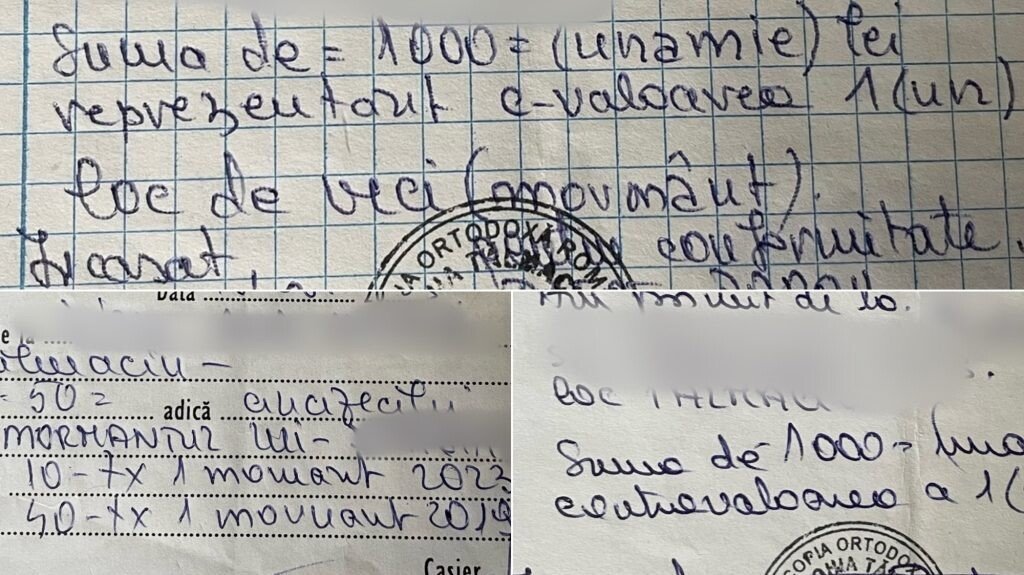 Suma de = 1000 = (unamie) lei
reprezentant c-valoarea 1 (un)
loc de veci (mormânt).
Încasat, conformitate.
ORTODOXĂ ROM
Data
= 50 = adică cincizeci
MORMANTUL lui -
10 - tx 1 mormant 2023
40 - tx 1 mormant 2019
Casier
Am primit de la.
loc TALMACI
Suma de 1000 =
contravaloarea a 1 (
OFIA ORTODO